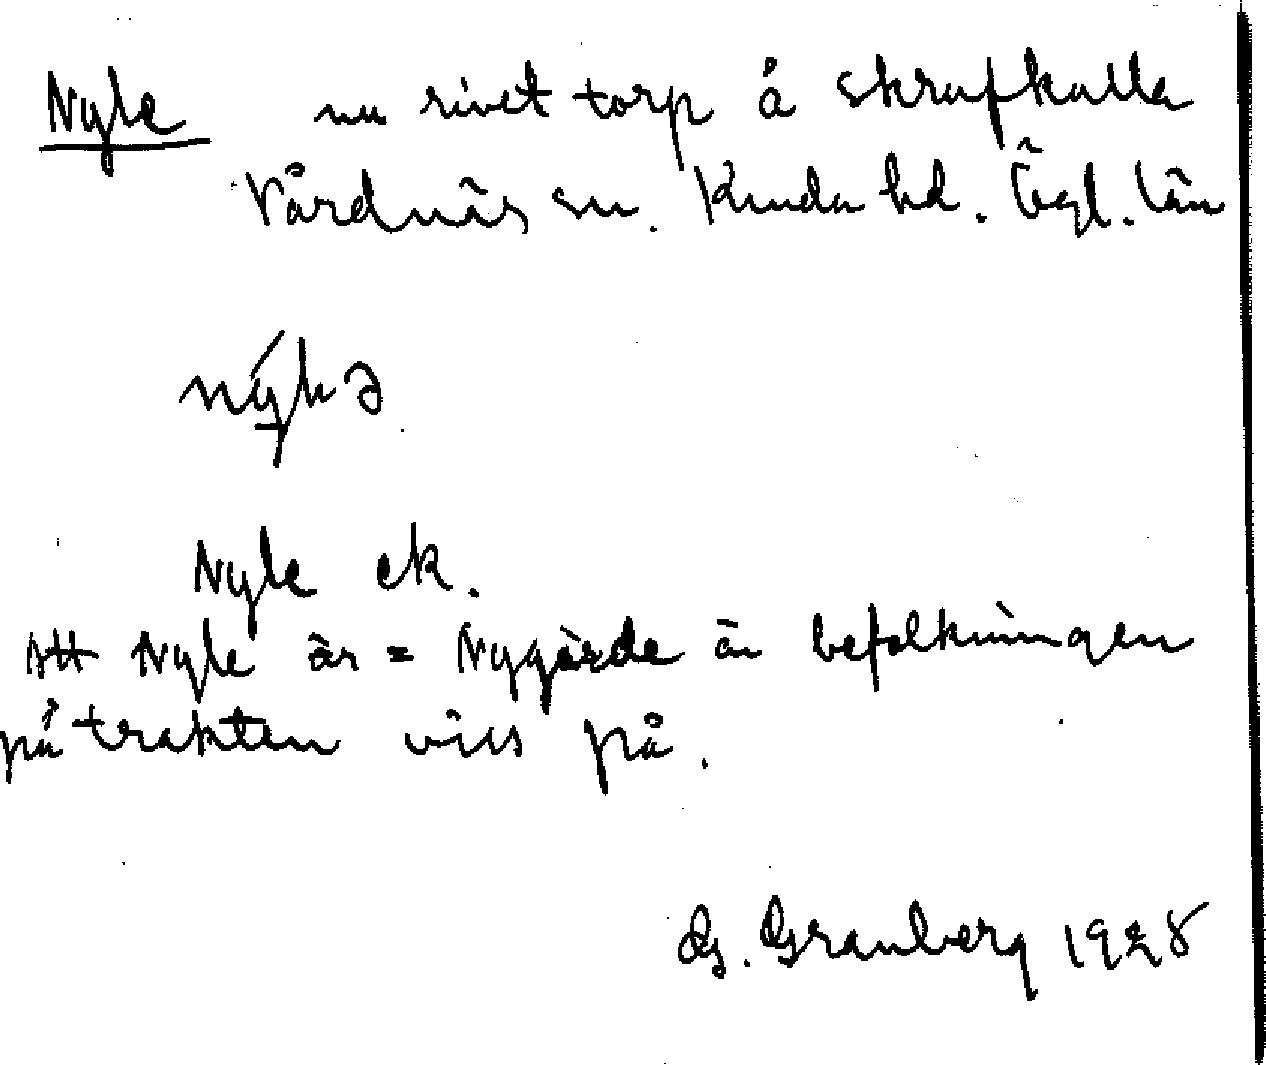 Nyle nu rivet torp å Skrufkulla
Vårdnäs sn. Kinda hd. Ögl. län
Nyle ek.
Att Nyle är = Nygärde är befolkningen
på trakten viss på.
G. Granberg 1928